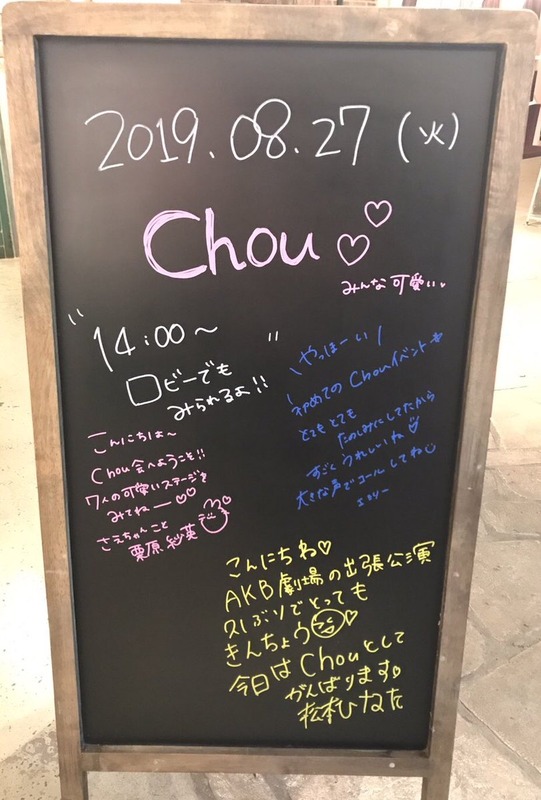 2019.08.27 (火)
Chou
みんな可愛い
14:00～
ロビーでも
みられるよ!!
こんにちは～
Chou会へようこそ!!
7人の可愛いステージを
みてねー♡♡
さえちゃんこと
栗原紗英
\やっほーい/
初めてのChouイベント
とてもとても
たのしみにしてたから
すごくうれしいね
大きな声でコールしてね
こんにちね♡
AKB劇場の出張公演
久しぶりでとっても
きんちょう
今日はChouとして
がんばります♡
松本ひなた